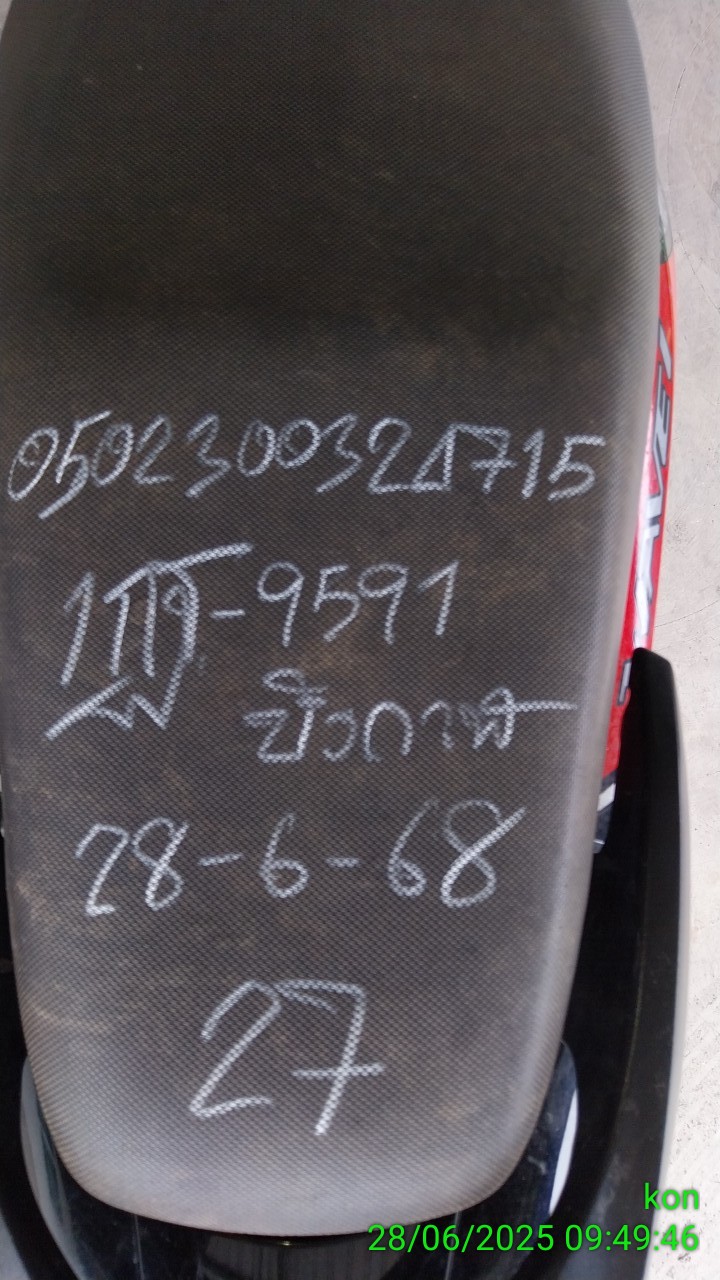 0502300324715
1กฎ-9591
บึงกาฬ
28-6-68
27
WAVE
kon
28/06/2025 09:49:46